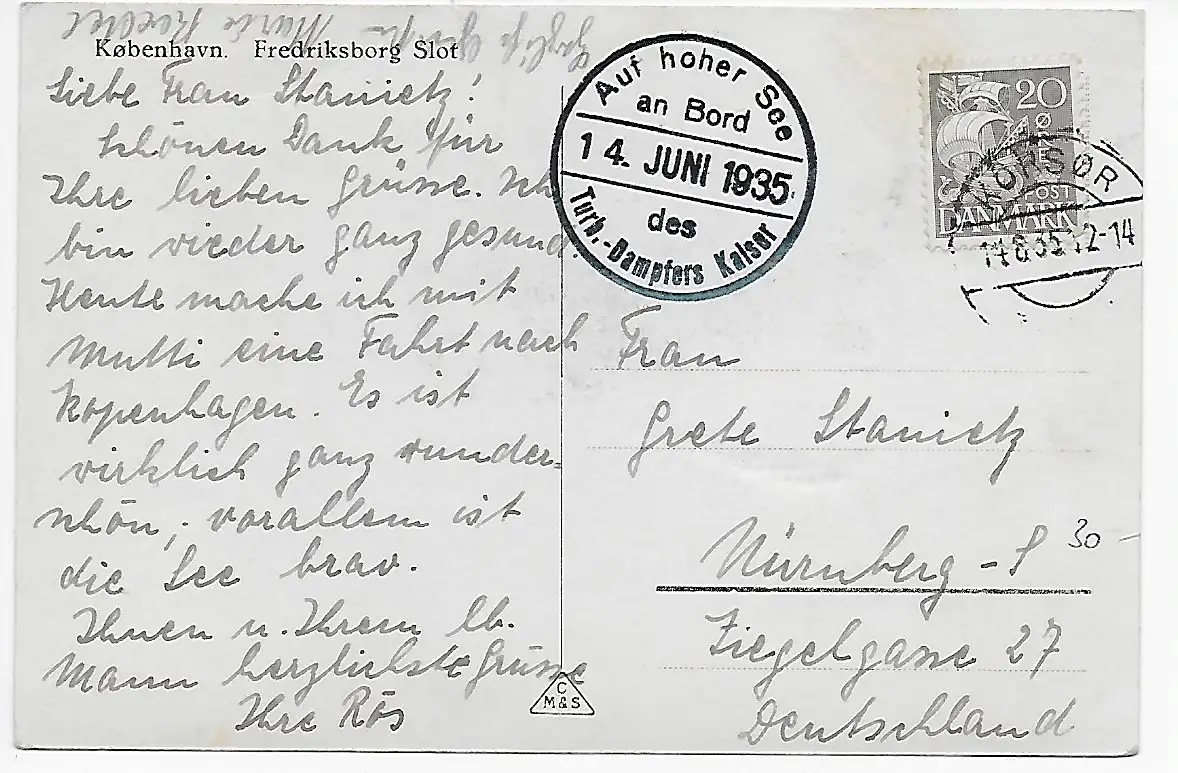 København. Fredriksborg Slot
Liebe Frau Stanietz!
Schönen Dank für
Ihre lieben Grüsse. Ich
bin wieder ganz gesund.
Heute mache ich mit
Mutti eine Fahrt nach
Kopenhagen. Es ist
wirklich ganz wunder=
schön, vorallem ist
die See brav.
Ihnen u. Ihrem lb.
Mann herzlichste Grüsse
Ihre Rös
Maria
C
M & S
Auf hoher See
an Bord
14. JUNI 1935
des
Turb.-Dampfers Kaiser
20
ØRE
POST
DANMARK
KORSØR
14 6 35 12-14
Frau
Grete Stanietz
Nürnberg - S
30 -
Ziegelgasse 27
Deutschland